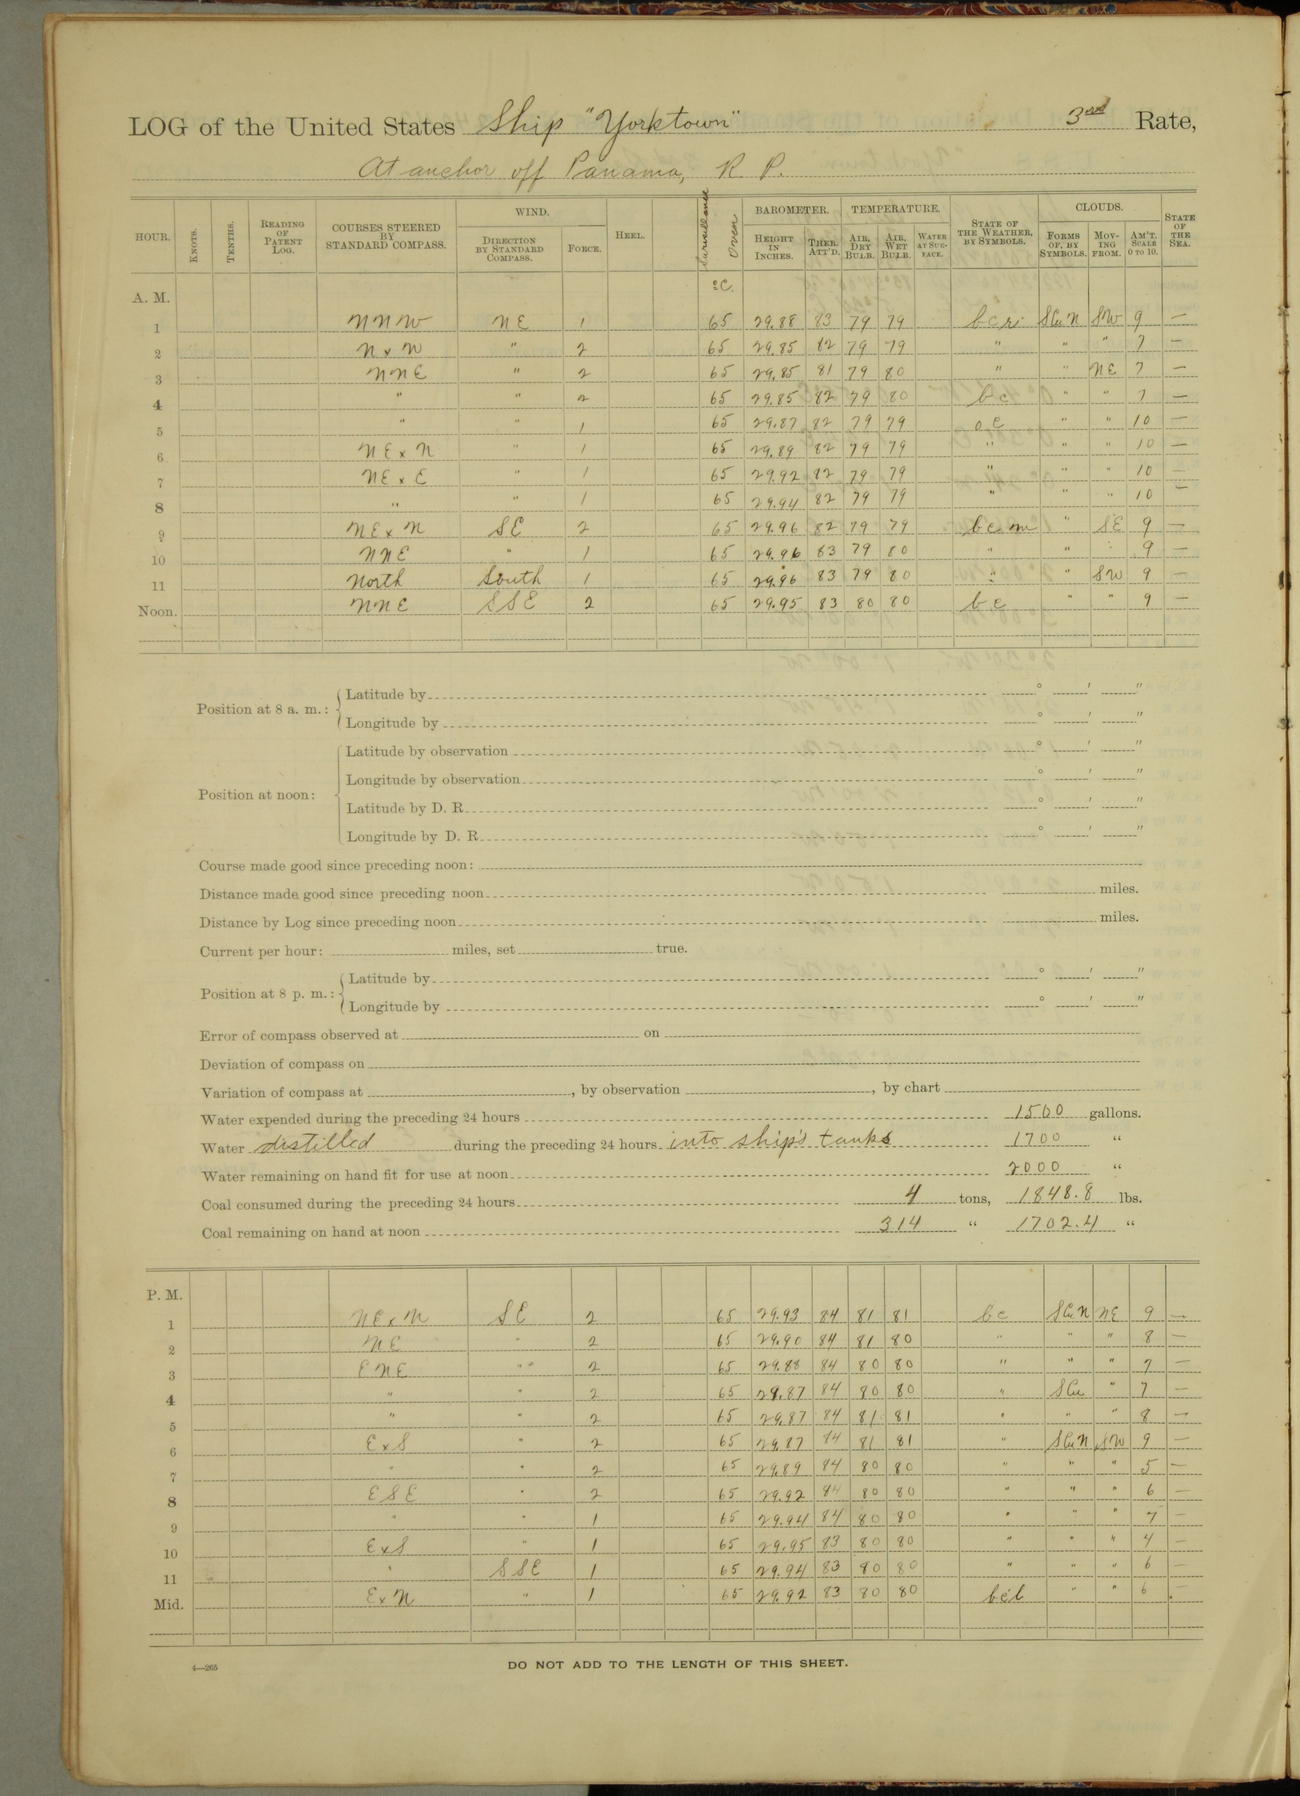 LOG of the United States Ship "Yorktown" 3rd Rate,
At anchor off Panama, R. P.
HOUR. KNOTS. TENTHS. READING OF PATENT LOG. COURSES STEERED BY STANDARD COMPASS. WIND. DIRECTION BY STANDARD COMPASS. FORCE. HEEL. Surveillance Oven BAROMETER. HEIGHT IN INCHES. THER. ATT'D. TEMPERATURE. AIR, DRY BULB. AIR, WET BULB. WATER AT SURFACE. STATE OF THE WEATHER, BY SYMBOLS. CLOUDS. FORMS OF, BY SYMBOLS. MOVING FROM. AM'T. SCALE 0 TO 10. STATE OF THE SEA.
A. M. °C.
1 NNW NE 1 65 29.88 83 79 79 bcr SCuN SW 9 —
2 N x W " 2 65 29.85 82 79 79 " " " 7 —
3 NNE " 2 65 29.85 81 79 80 " " NE 7 —
4 " " 2 65 29.85 82 79 80 bc " " 7 —
5 " " 1 65 29.87 82 79 79 oc " " 10 —
6 NE x N " 1 65 29.89 82 79 79 " " " 10 —
7 NE x E " 1 65 29.92 82 79 79 " " " 10 —
8 " " 1 65 29.94 82 79 79 " " " 10 —
9 NE x N SE 2 65 29.96 82 79 79 bcm " SE 9 —
10 NNE " 1 65 29.96 83 79 80 " " " 9 —
11 North South 1 65 29.96 83 79 80 " " SW 9 —
Noon. NNE SSE 2 65 29.95 83 80 80 bc " " 9 —
Position at 8 a. m.: Latitude by ° ' "
Longitude by ° ' "
Position at noon: Latitude by observation ° ' "
Longitude by observation ° ' "
Latitude by D. R. ° ' "
Longitude by D. R. ° ' "
Course made good since preceding noon:
Distance made good since preceding noon miles.
Distance by Log since preceding noon miles.
Current per hour: miles, set true.
Position at 8 p. m.: Latitude by ° ' "
Longitude by ° ' "
Error of compass observed at on
Deviation of compass on
Variation of compass at , by observation , by chart
Water expended during the preceding 24 hours 1500 gallons.
Water distilled during the preceding 24 hours into ship's tanks 1700 "
Water remaining on hand fit for use at noon 2000 "
Coal consumed during the preceding 24 hours 4 tons, 1848.8 lbs.
Coal remaining on hand at noon 314 " 1702.4 "
P. M.
1 NE x N SE 2 65 29.93 84 81 81 bc SCuN NE 9 —
2 NE " 2 65 29.90 84 81 80 " " " 8 —
3 ENE " 2 65 29.88 84 80 80 " " " 7 —
4 " " 2 65 29.87 84 80 80 " SCu " 7 —
5 " " 2 65 29.87 84 81 81 " " " 8 —
6 E x S " 2 65 29.87 84 81 81 " SCuN SW 9 —
7 " " 2 65 29.89 84 80 80 " " " 5 —
8 ESE " 2 65 29.92 84 80 80 " " " 6 —
9 " " 1 65 29.94 84 80 80 " " " 7 —
10 E x S " 1 65 29.95 83 80 80 " " " 4 —
11 " SSE 1 65 29.94 83 80 80 " " " 6 —
Mid. E x N " 1 65 29.92 83 80 80 bcl " " 6 -
4—265 DO NOT ADD TO THE LENGTH OF THIS SHEET.